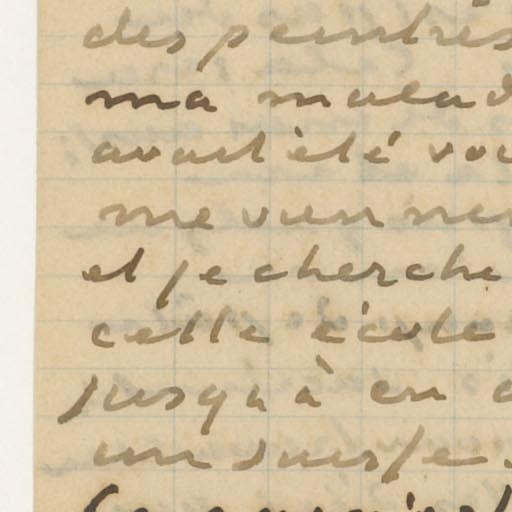 des peintres
ma malad
avait été vou
me viennen
et je cherche
cette école
jusqu'à en
un suisse